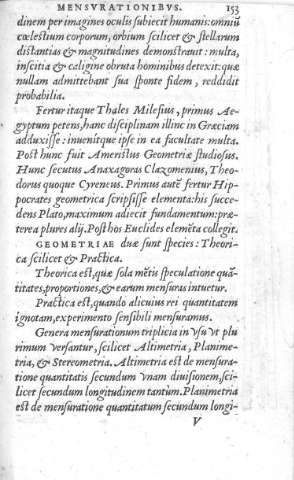 MENSVRATIONIBVS. 153
dinem per imagines oculis subiecit humanis: omniũ
cœlestium corporum, orbium scilicet & stellarum
distantias & magnitudines demonstrauit: multa,
inscitia & caligine obruta hominibus detexit: quæ
nullam admittebant sua sponte fidem, reddidit
probabilia.
Fertur itaque Thales Milesius, primus Ae-
gyptum petens, hanc disciplinam illinc in Græciam
adduxisse: inuenitque ipse in ea facultate multa.
Post hunc fuit Ameristus Geometriæ studiosus.
Hunc secutus Anaxagoras Clazomenius, Theo-
dorus quoque Cyreneus. Primus autẽ fertur Hip-
pocrates geometrica scripsisse elementa: his succe-
dens Plato, maximum adiecit fundamentum: præ-
terea plures alij. Post hos Euclides elemẽta collegit.
GEOMETRIAE duæ sunt species: Theori-
ca scilicet & Practica.
Theorica est, quæ sola mẽtis speculatione quã-
titates, proportiones, & earum mensuras intuetur.
Practica est, quando alicuius rei quantitatem
ignotam, experimento sensibili mensuramus.
Genera mensurationum triplicia in vsu vt plu
rimum versantur, scilicet Altimetria, Planime-
tria, & Stereometria. Altimetria est de mensura-
tione quantitatis secundum vnam diuisionem, sci-
licet secundum longitudinem tantùm. Planimetria
est de mensuratione quantitatum secundum longi-
V